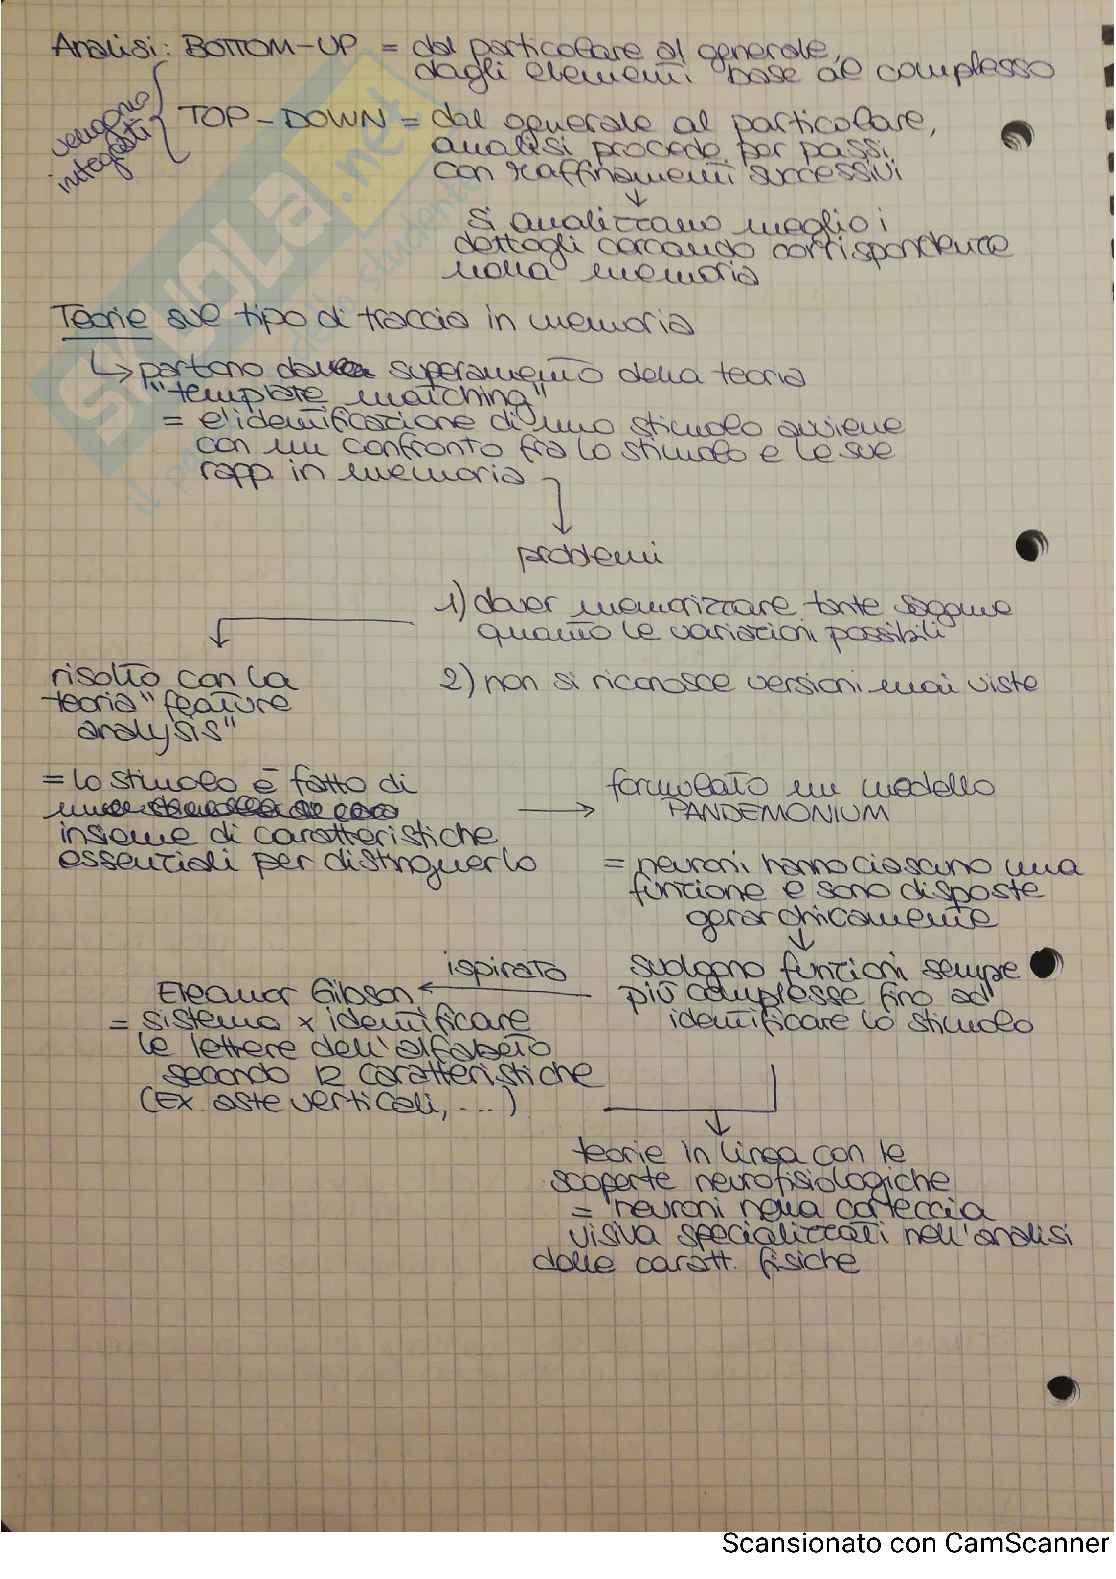 Analisi: BOTTOM-UP = dal particolare al generale,
dagli elementi base al complesso
vengono
integrati
TOP-DOWN = dal generale al particolare,
analisi procede per passi
con raffinamenti successivi
↓
si analizzano meglio i
dettagli cercando corrispondenze
nella memoria
Teorie sul tipo di traccia in memoria
↳ partono dal superamento della teoria
"template matching"
= l'identificazione di uno stimolo avviene
con un confronto fra lo stimolo e le sue
rapp. in memoria
problemi
1) dover memorizzare tante sagome
quanto le variazioni possibili
2) non si riconosce versioni mai viste
risolto con la
teoria "feature
analysis"
= lo stimolo è fatto di
insieme di caratteristiche
essenziali per distinguerlo
→ formulato un modello
PANDEMONIUM
= neuroni hanno ciascuno una
funzione e sono disposte
gerarchicamente
↓
svolgono funzioni sempre
più complesse fino ad
identificare lo stimolo
ispirato
Eleanor Gibson
= sistema x identificare
le lettere dell'alfabeto
secondo 12 caratteristiche
(Ex. aste verticali, ...)
teorie in linea con le
scoperte neurofisiologiche
= neuroni nella corteccia
visiva specializzati nell'analisi
delle caratt. fisiche
SKUOLA.net
Scansionato con CamScanner